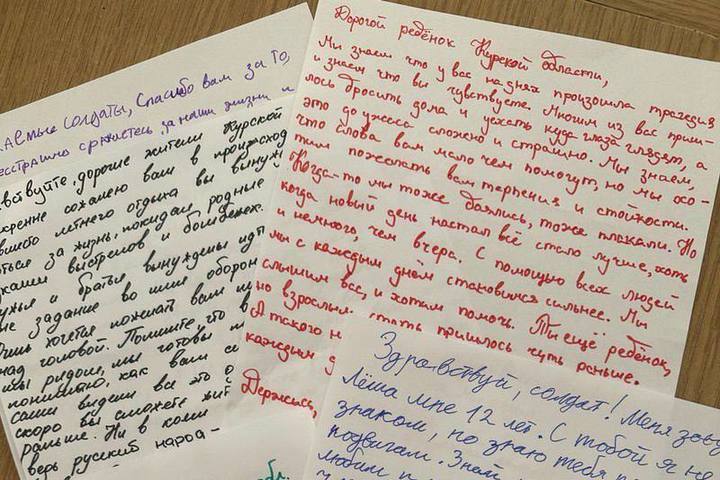 Дорогой ребёнок Курской области,
Мы знаем что у вас на днях произошла трагедия
и знаем что вы чувствуете. Многим из вас приш-
лось бросить дома и уехать куда глаза глядят, а
это до ужаса сложно и страшно. Мы знаем,
что слова вам мало чем помогут, но мы хо-
тим пожелать вам терпения и стойкости.
Когда-то мы тоже боялись, тоже плакали. Но
когда новый день настал всё стало лучше, хоть
и немного, чем вчера. С помощью всех людей
мы с каждым днём становился сильнее. Мы
слышим вас, и хотим помочь. Ты ещё ребёнок,
но взрослым стать пришлось чуть раньше.
А такого н
каждым д
Держись,
солдаты, Спасибо вам за то,
сражаетесь за наши жизни и
дорогие жители Курской
сожалею вам в происход
летнего отдыха вы вынуж
за жизнь, покидая родные
выстрелов и бомбёжек.
и братья вынуждены идт
задание во имя оборон
хочется пожелать вам ми
над головой. Помните, что в
мы рядом, мы готовы п
понимаю, как вам с
сами видели все это о
скоро вы сможете жит
раньше. Ни в коем
верь русский народ-
Здравствуй, солдат! Меня зову
Лёша мне 12 лет. С тобой я не
знаком, но знаю тебя по
подвигам. Знай
любим